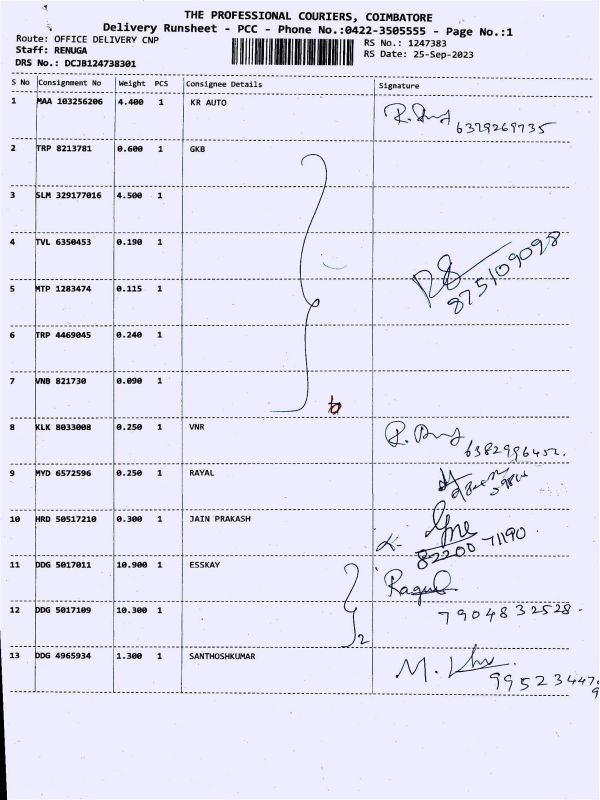 THE PROFESSIONAL COURIERS, COIMBATORE
Delivery Runsheet - PCC - Phone No.:0422-3505555 - Page No.:1
Route: OFFICE DELIVERY CNP
RS No.: 1247383
Staff: RENUGA
RS Date: 25-Sep-2023
DRS No.: DCJB124738301
S No Consignment No Weight PCS Consignee Details Signature
1 MAA 103256206 4.400 1 KR AUTO
6379269735
2 TRP 8213781 0.600 1 GKB
3 SLM 329177016 4.500 1
4 TVL 6350453 0.190 1
875109098
5 MTP 1283474 0.115 1
6 TRP 4469045 0.240 1
7 VNB 821730 0.090 1
8 KLK 8033008 0.250 1 VNR
6382996452.
9 MYD 6572596 0.250 1 RAYAL
10 HRD 50517210 0.300 1 JAIN PRAKASH
82200 71190
11 DDG 5017011 10.900 1 ESSKAY
Ragul
12 DDG 5017109 10.300 1
7904832528
2
13 DDG 4965934 1.300 1 SANTHOSHKUMAR
M.
995234479